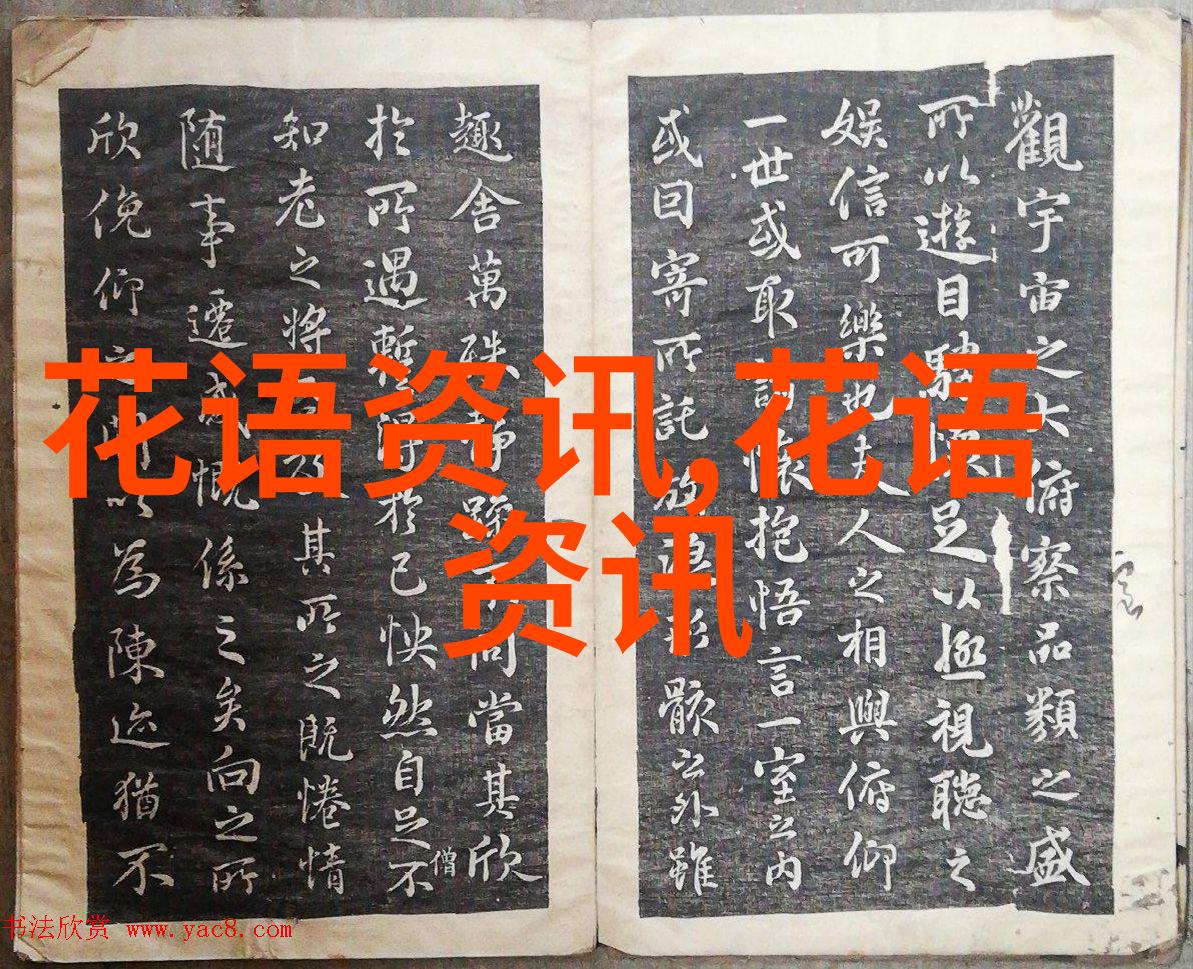 觀宇宙之大俯察品類之盛
所以遊目騁懷足以極視聽之
娛信可樂也夫人之相與俯仰
一世或取諸懷抱悟言一室之內
或因寄所託放形骸之外雖
趣舍萬殊靜躁同當其欣
於所遇暫得於己怏然自足不
僧
知老之將其所之既惓情
隨事遷感慨係之矣向之所
欣俛仰之間以為陳迹猶不
花语资讯,花语
资讯
书法欣赏 www.yac8.com